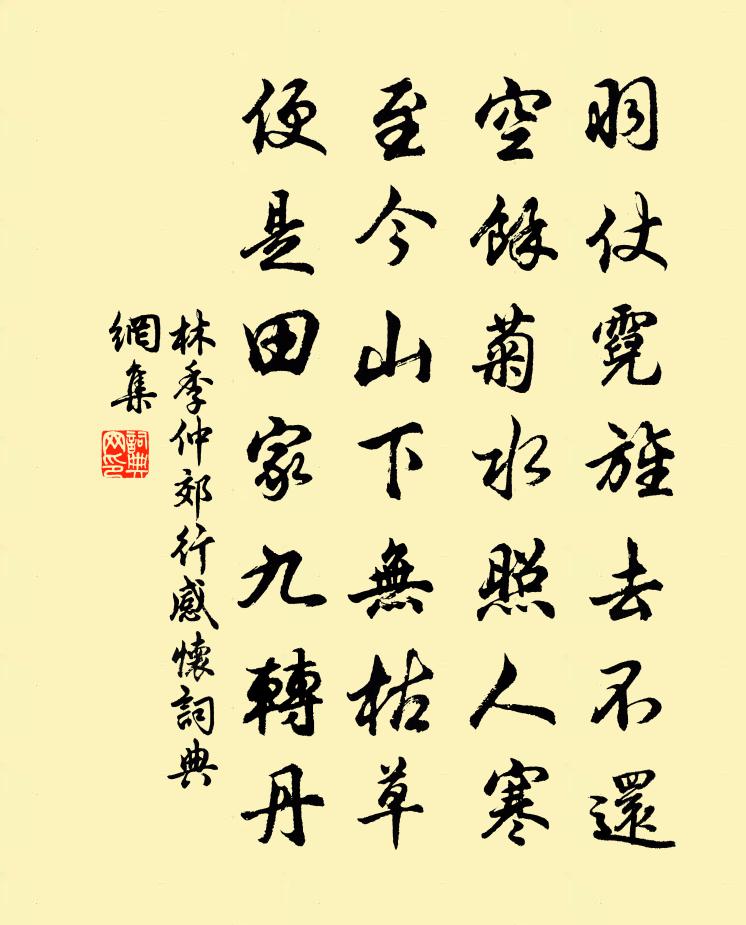 羽仗霓旌去不還
空餘菊水照人寒
至今山下無枯草
便是田家九轉丹
林季仲郊行感懷詞典
網集
詞典
网印